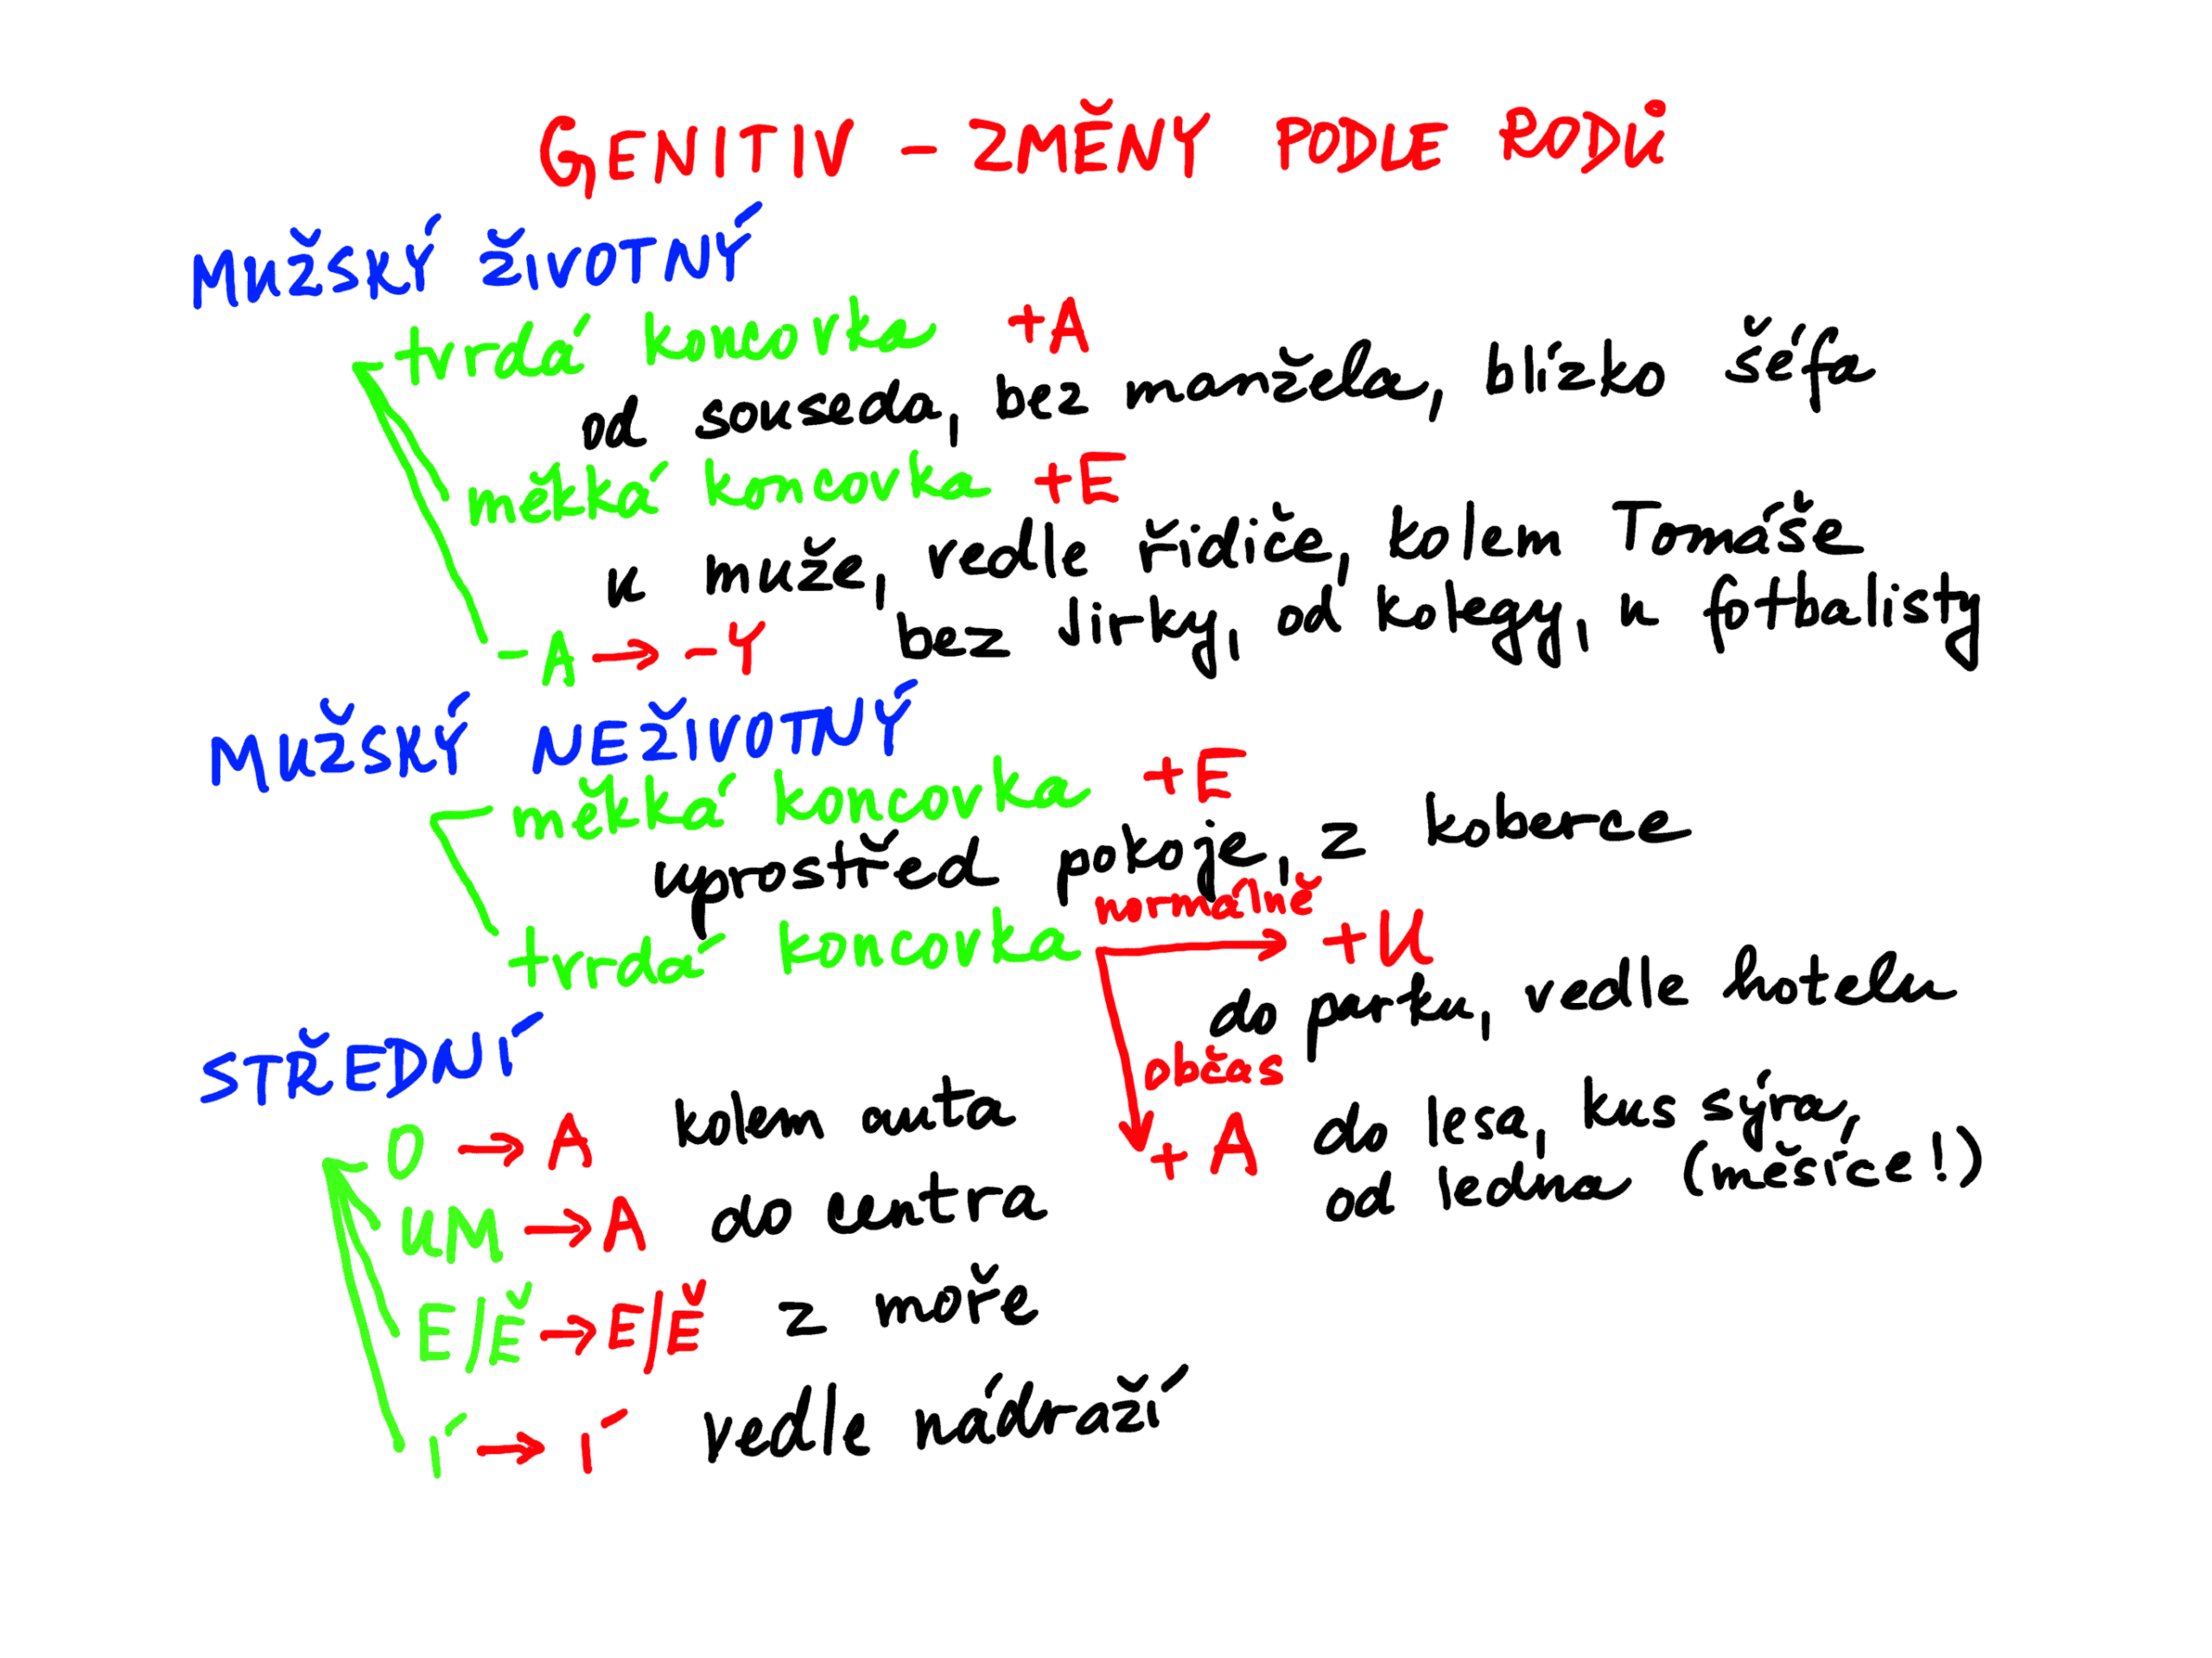 GENITIV - ZMĚNY PODLE RODŮ
MUŽSKÝ ŽIVOTNÝ
tvrdá koncovka +A
od souseda, bez manžela, blízko šéfa
měkká koncovka +E
u muže, vedle řidiče, kolem Tomáše
-A → -Y bez Jirky, od kolegy, u fotbalisty
MUŽSKÝ NEŽIVOTNÝ
měkká koncovka +E
uprostřed pokoje, z koberce
tvrdá koncovka normálně → +U
do parku, vedle hotelu
občas
+ A do lesa, kus sýra,
od ledna (měsíce!)
STŘEDNÍ
O → A kolem auta
UM → A do centra
E/Ě → E/Ě z moře
Í → Í vedle nádraží